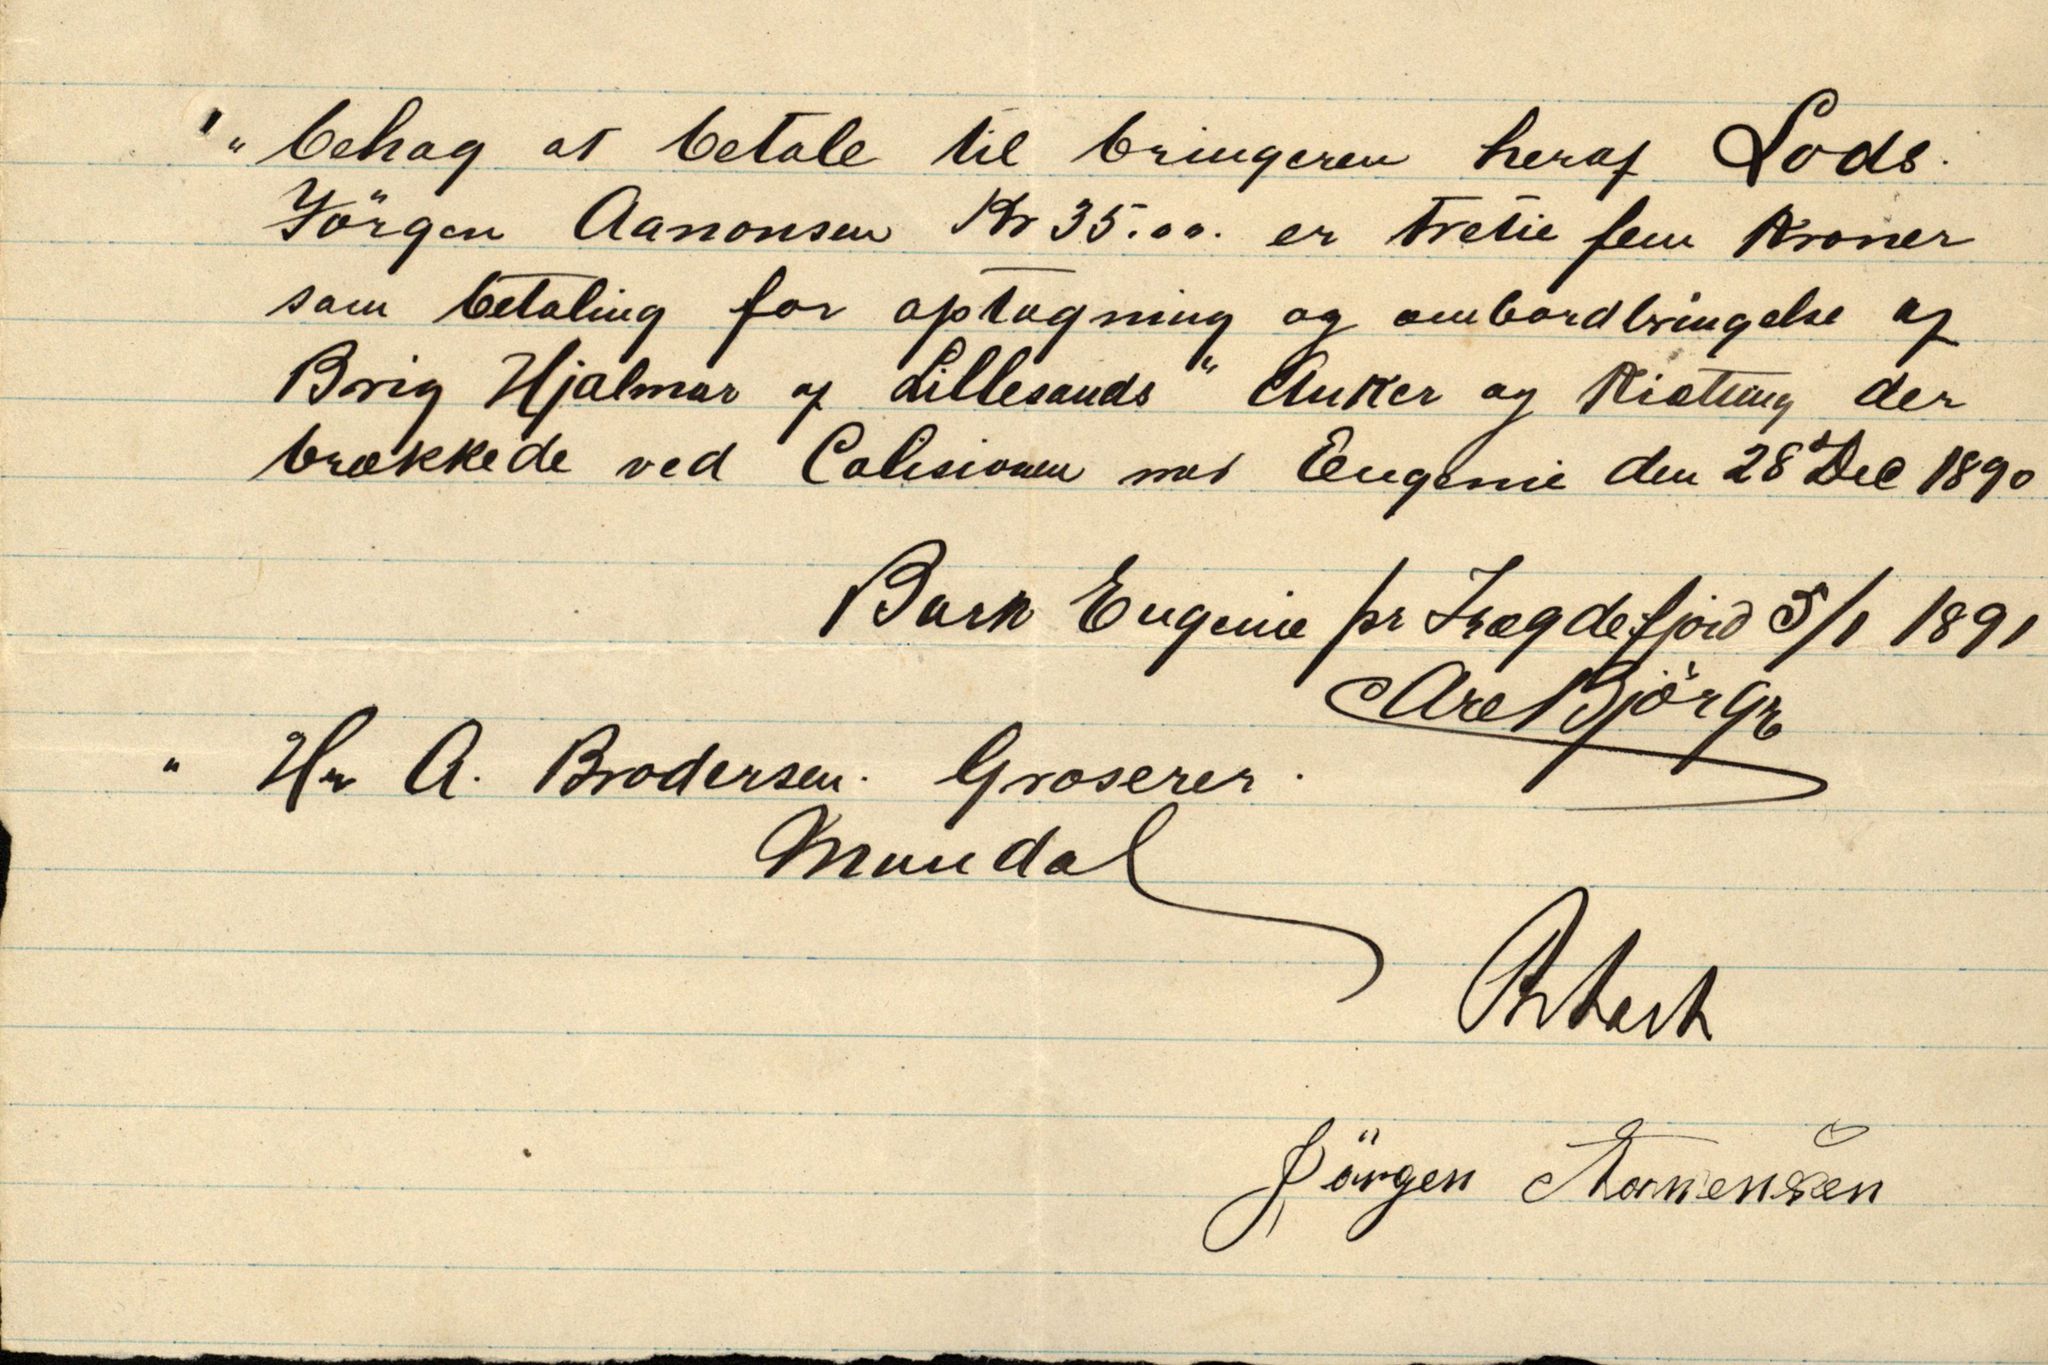 " behag at betale til bringeren heraf Lods.
Jörgen Aanonsen Kr 35.00. er tretie fem Kroner
som betaling for optagning og ombordbringelse af
Brig Hjalmar af Lillesands" Anker og Kiætting der
brækkede ved Colisionen med Eugenie den 28 Dec 1890
Bark Eugenie pr Trægdefjord 5/1 1891
Axel Björge
" Hr A. Brodersen. Groserer.
Mandal
Jörgen Aanensen